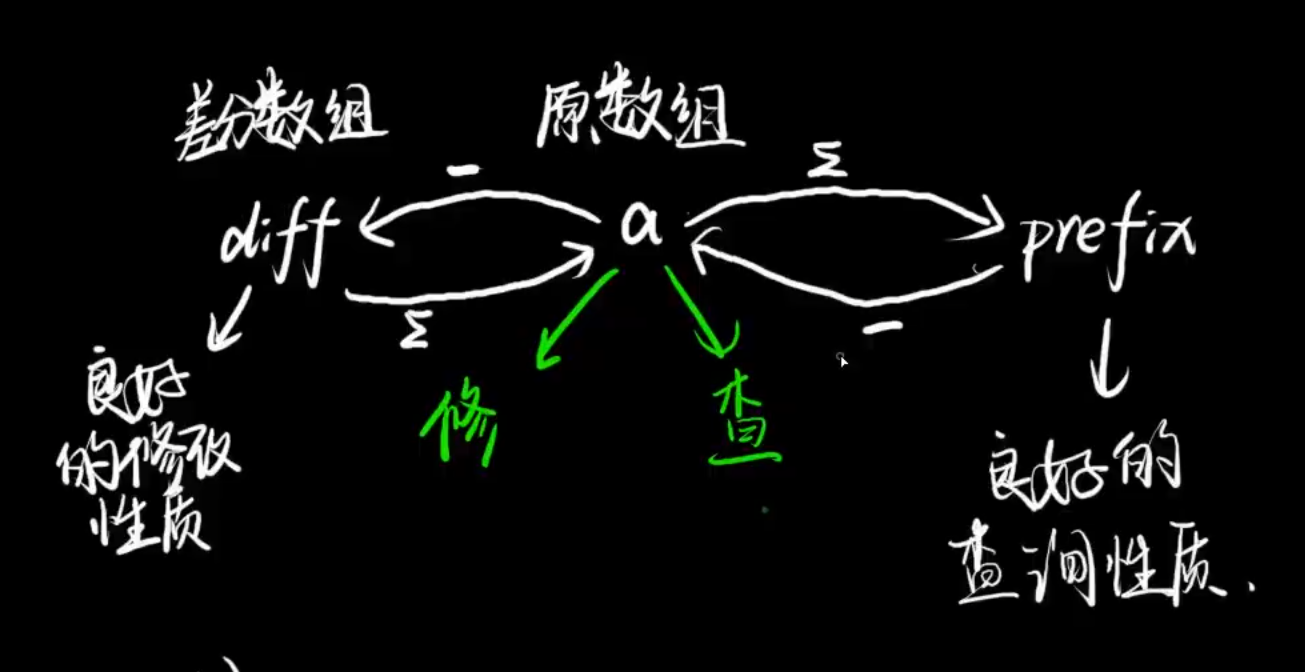 差分数组
原数组
-
Σ
diff
a
prefix
Σ
-
良好
的修改
性质
修
查
良好的
查询性质.